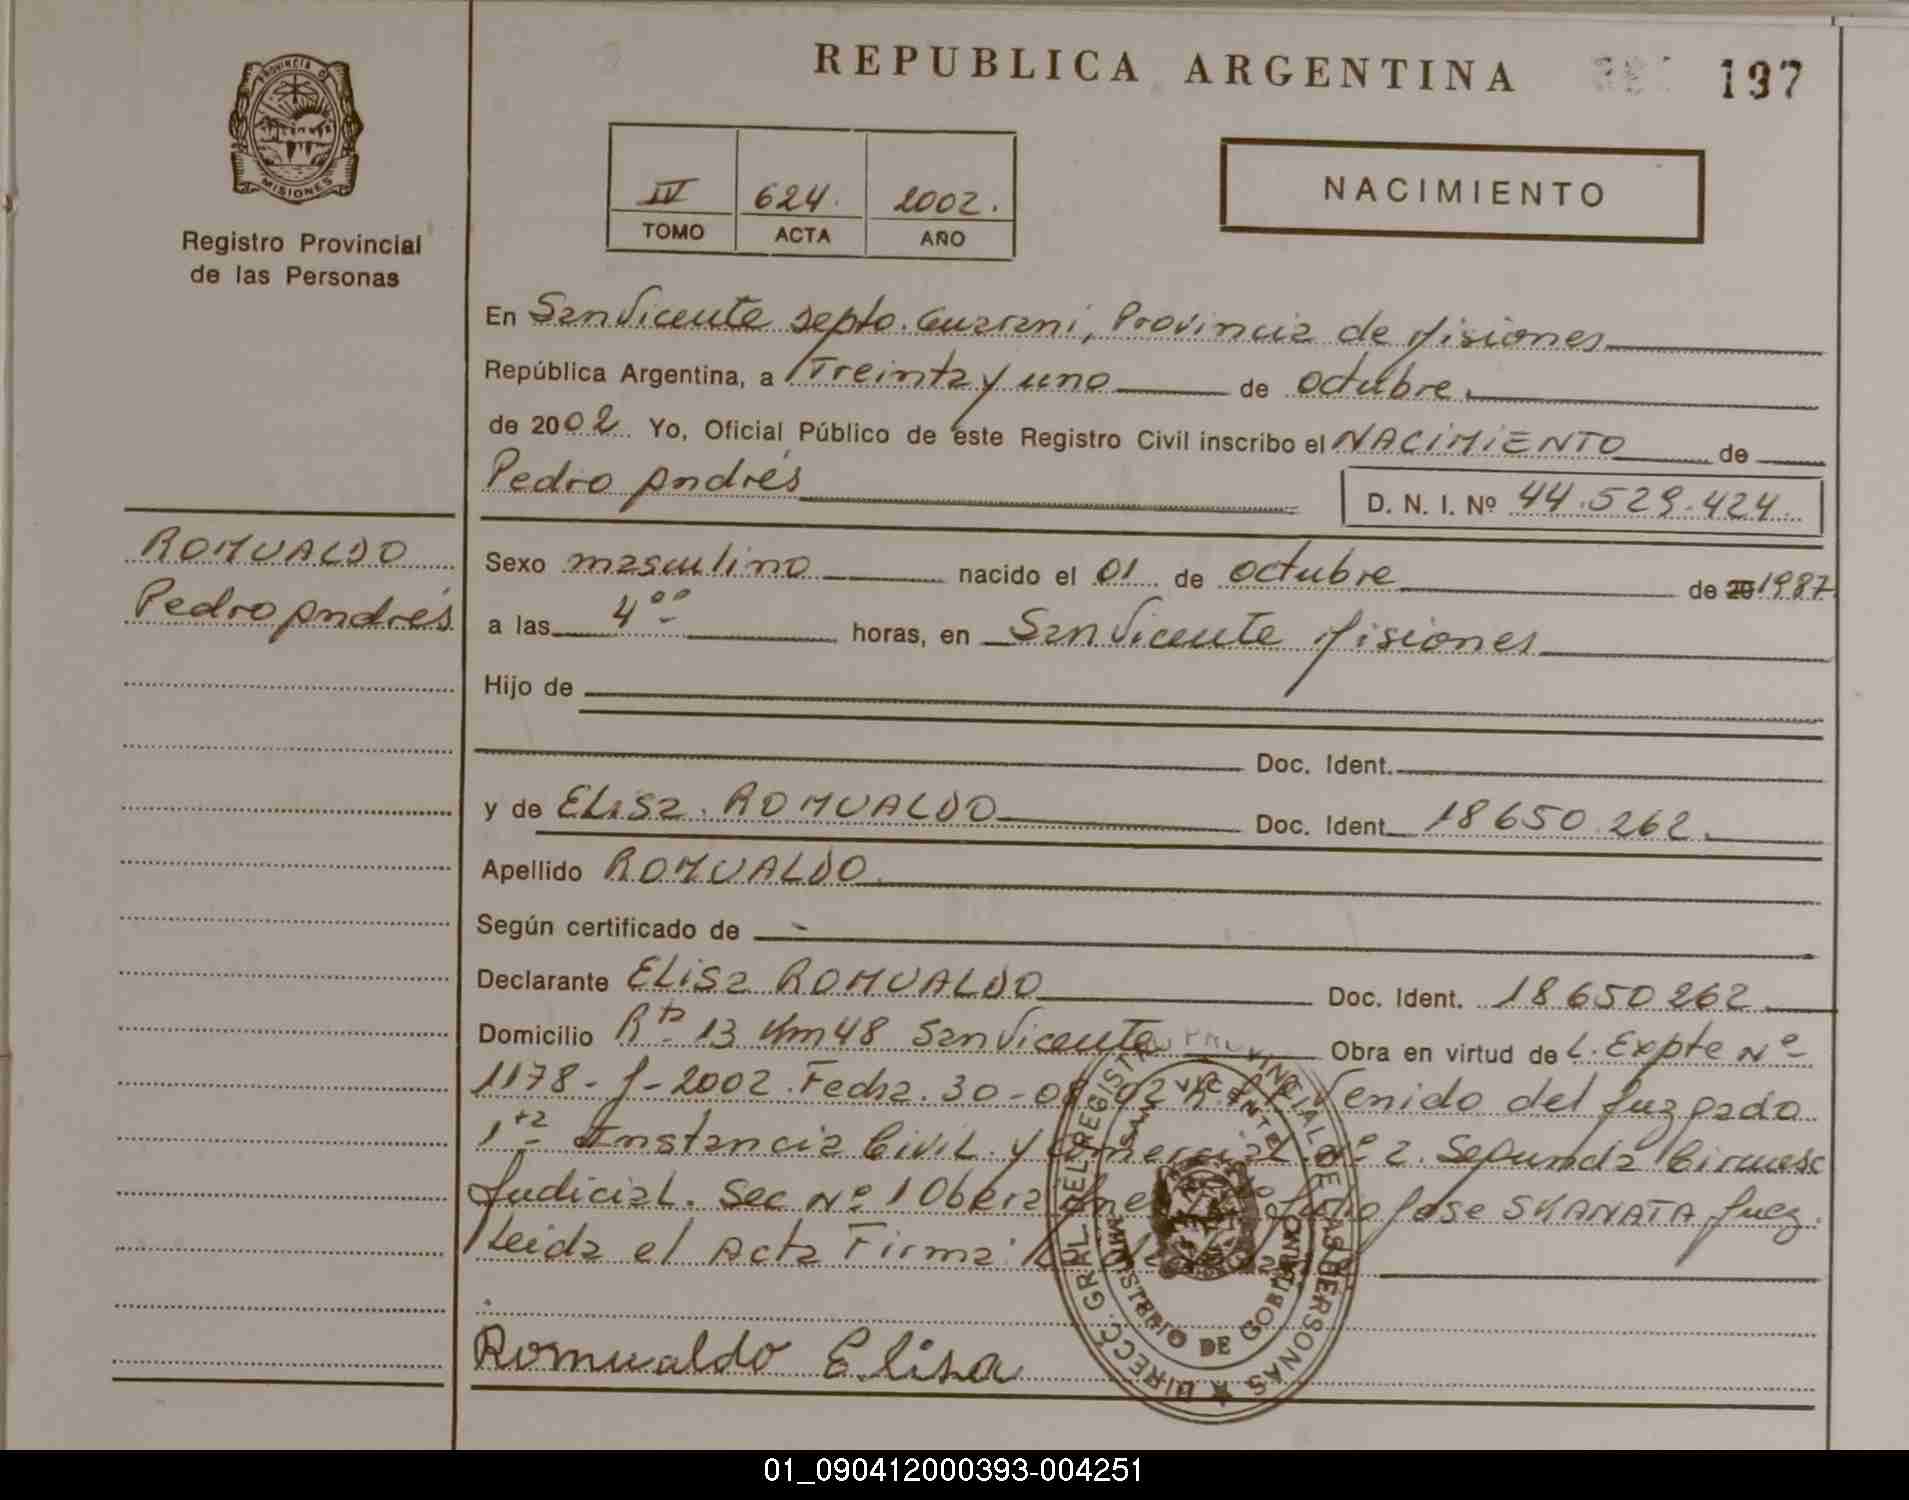 REPUBLICA ARGENTINA 197
PROVINCIA DE MISIONES
Registro Provincial
de las Personas
IV 624. 2002.
TOMO ACTA AÑO
NACIMIENTO
En San Vicente Depto. Guarani, Provincia de Misiones
República Argentina, a Treinta y uno de octubre
de 2002 Yo, Oficial Público de este Registro Civil inscribo el NACIMIENTO de
Pedro Andrés
D. N. I. Nº 44.529.424
ROMUALDO
Pedro Andrés
Sexo masculino nacido el 01 de octubre de 20 1987
a las 4 00 horas, en San Vicente Misiones
Hijo de
Doc. Ident.
y de Elisa ROMUALDO Doc. Ident. 18650.262.
Apellido ROMUALDO
Según certificado de
Declarante Elisa ROMUALDO Doc. Ident. 18650262
Domicilio Rta 13 Km 48 San Vicente Obra en virtud de L. Expte Nº
1178-J-2002. Fecha. 30-08-02 Venido del Juzgado
1ra Instancia Civil y Comercial Nº 2. Segunda Circunsc
Judicial. Sec Nº 1 Obera Jose SKANATA Juez.
Leida el Acta Firma
Romualdo Elisa
DIRECC. GRAL DEL REGISTRO PROVINCIAL DE LAS PERSONAS
SAN VICENTE
MINISTERIO DE GOBIERNO
01_090412000393-004251